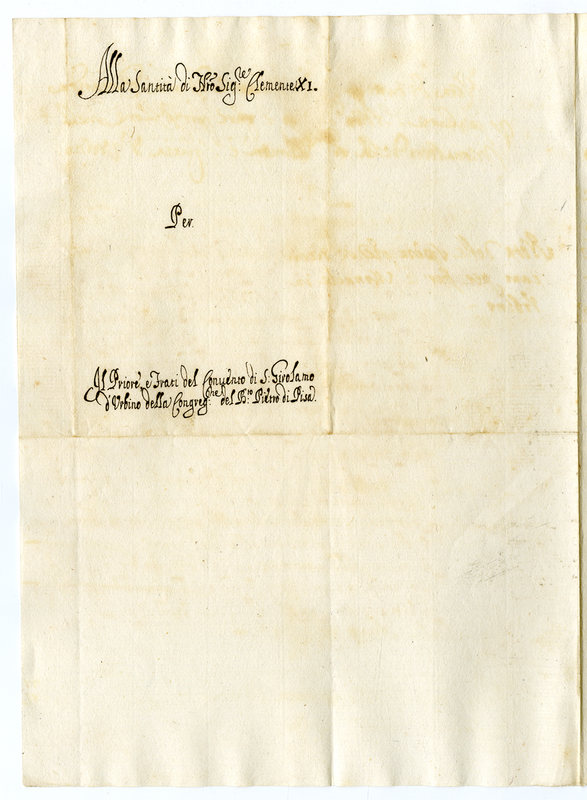 Alla Santità di Nrõ Sig:re Clemente XI.
Per.
Il Priore, e Frati del Convento di S: Girolamo
d'Urbino della Congreg:ne del B:to Pietro di Pisa.